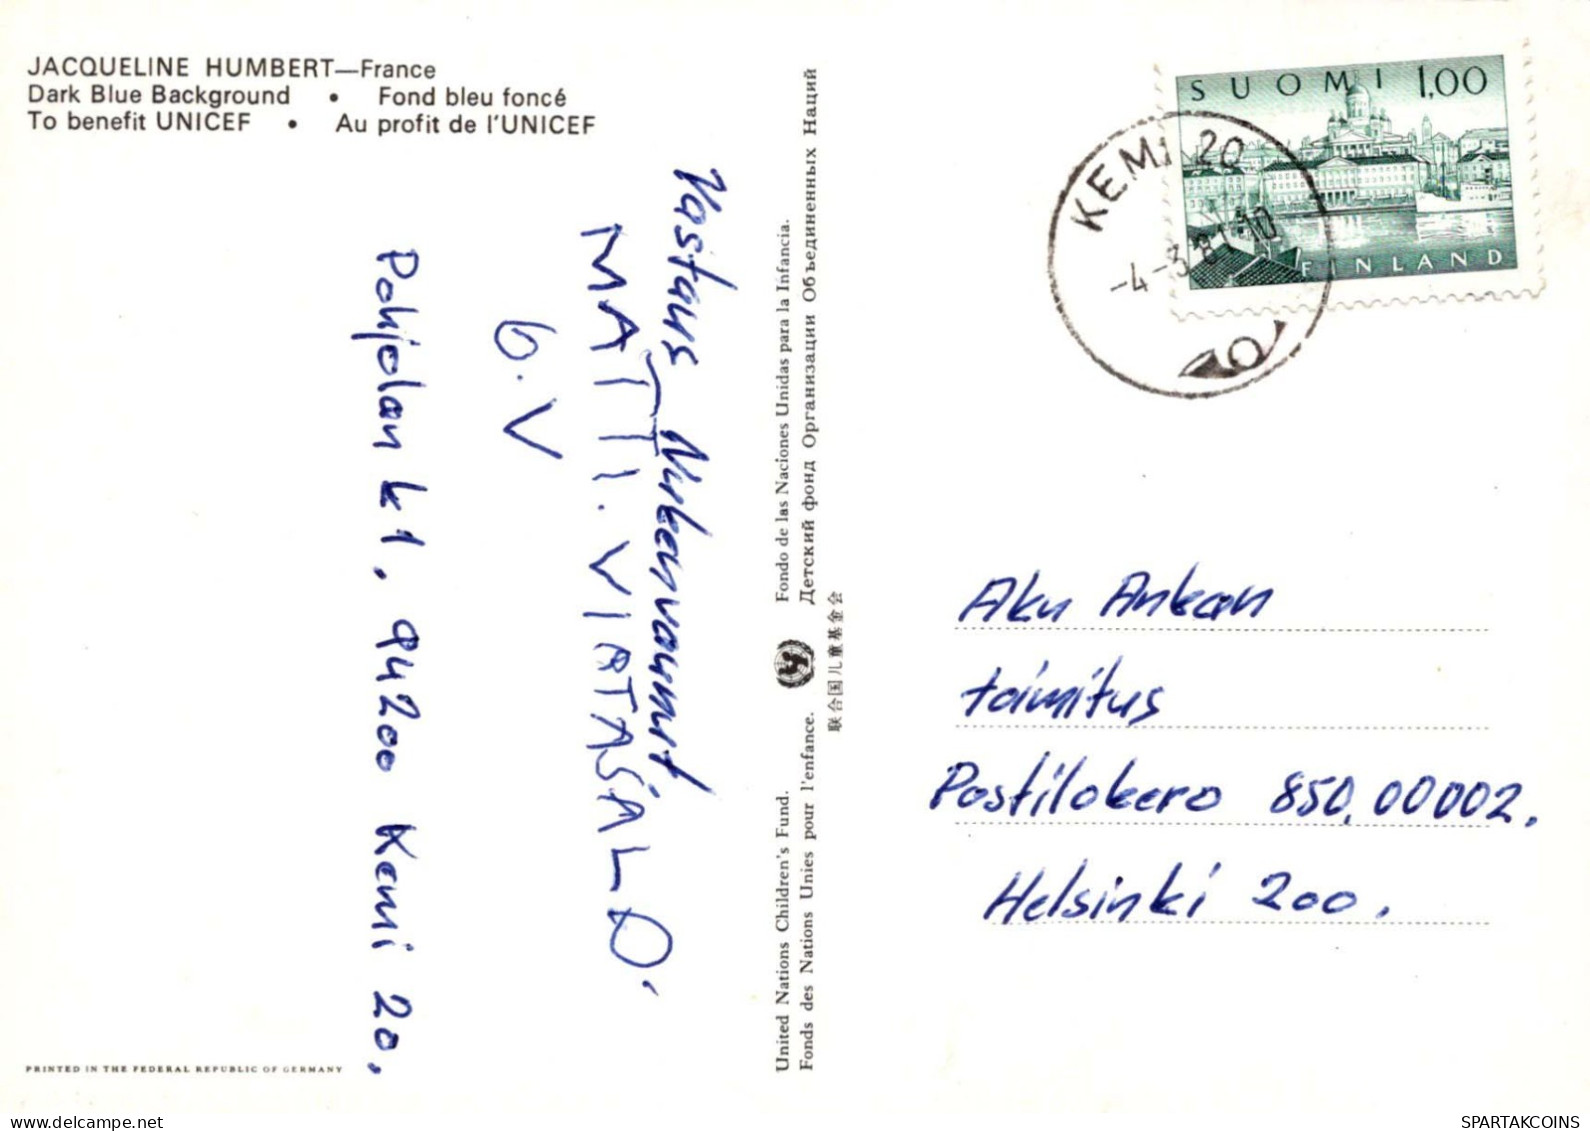 JACQUELINE HUMBERT—France
Dark Blue Background • Fond bleu foncé
To benefit UNICEF • Au profit de l'UNICEF
Vastaus
MATTI. VIATASALO.
6.V
Pohjolan k 1. 94200 Kemi 20.
PRINTED IN THE FEDERAL REPUBLIC OF GERMANY
United Nations Children's Fund. Fondo de las Naciones Unidas para la Infancia.
Fonds des Nations Unies pour l'enfance. Детский фонд Организации Объединенных Наций
联合国儿童基金会
SUOMI 1,00
FINLAND
KEMI 20
-4-3.81-10
Aku Ankan
toimitus
Postilokero 850, 00002.
Helsinki 200.
SPARTAKCOINS